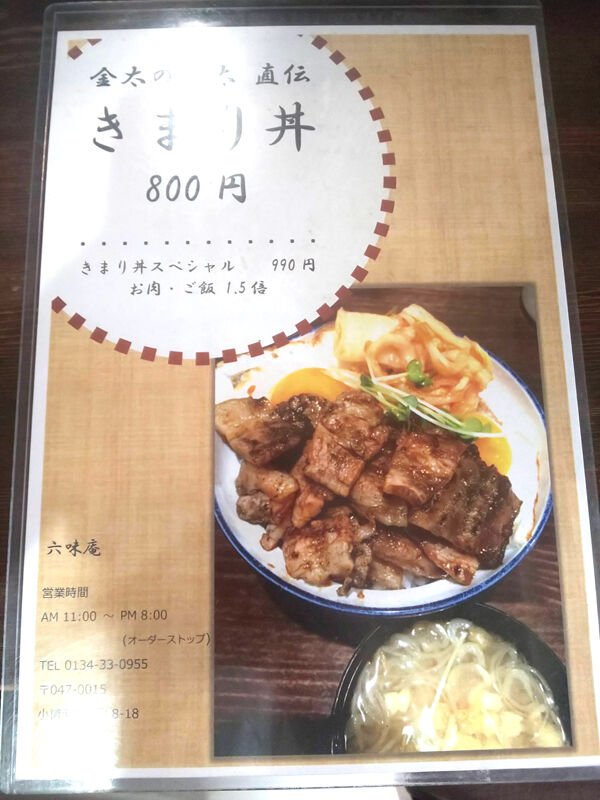 金太の 太 直伝
きまり丼
800 円
きまり丼スペシャル 990 円
お肉・ご飯 1.5 倍
六味庵
営業時間
AM 11:00 ～ PM 8:00
(オーダーストップ)
TEL 0134-33-0955
〒047-0015
8-18